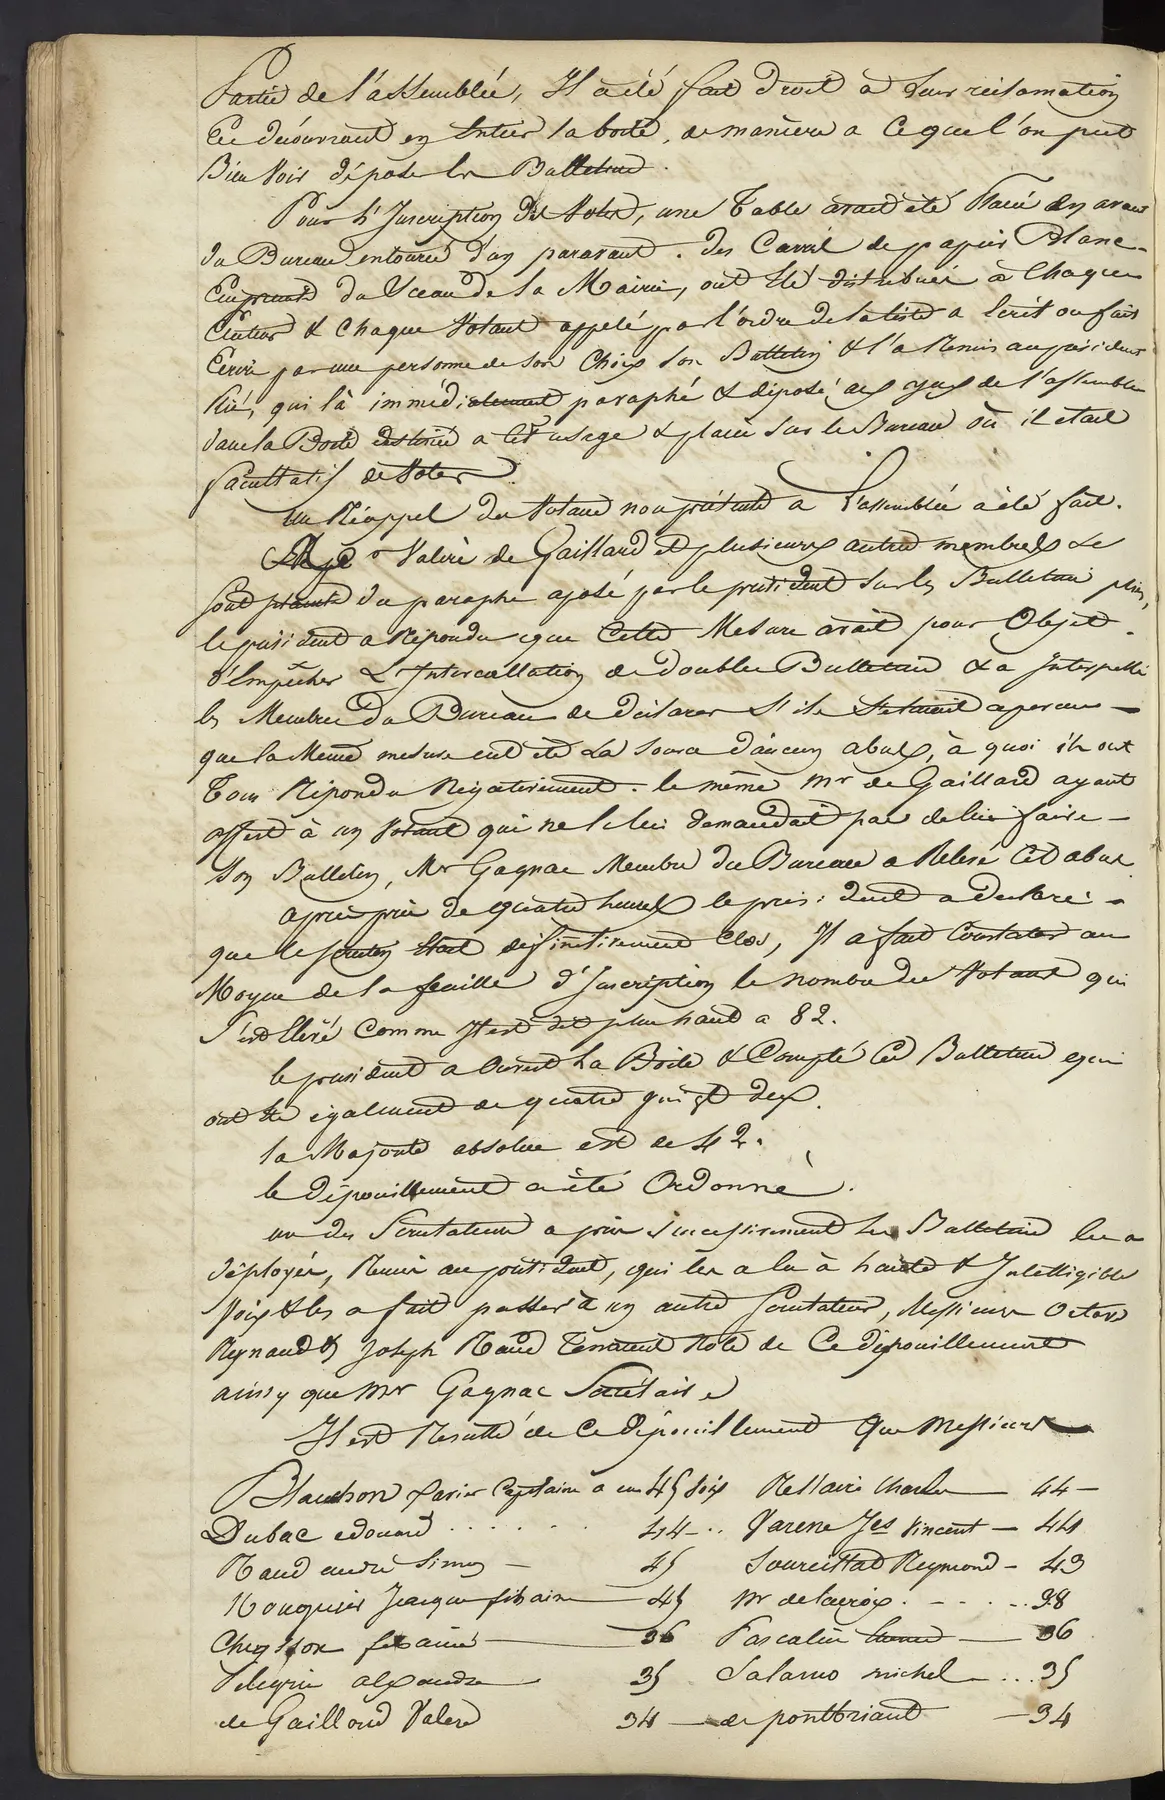 Partie de l'assemblée, Il a été fait droit a Leur réclamation
En découvrant en Entier la boite, de maniere a ce que l'on peut
Bien Voir déposer les Bulletins.
Pour l'Inscription des Votes, une Table avait été Placée en avant
du Bureau entourée d'un paravant. des Carrés de papier Blanc
Empreint du Sceau de la Mairie, ont été distribués à Chaque
Electeur & Chaque Votant appelé par l'ordre de la liste a Ecrit ou fait
Ecrire par une personne de son Choix son Bulletin & l'a Remis au président
qui l'à immédiatement paraphé & déposé aux yeux de l'assemblée
dans la Boite destinée a cet usage & placée sur le Bureau où il etait
facultatif de Voter.
un Réappel des Votans non présents a L'assemblée a été fait.
Valère de Gaillard et plusieurs autres membres se
sont plaints du paraphe aposé par le président sur les Bulletins pliés,
le président a Répondu que Cette Mesure avait pour Objet
d'Empêcher L'Intercallation de doubles Bulletins & a Interpellé
les Membres du Bureau de déclarer s'ils s'etaient aperçus
que la Meme mesure eut été La source d'aucun abus, à quoi ils ont
Tous Répondu Négativement. le même Mr de Gaillard ayant
offert à un Votant qui ne le lui demandait pas de lui faire
son Bulletin, Mr Gagnac Membre du Bureau a Relevé Cet abus
après près de quatre heures le président a declaré
que le scrutin était définitivement Clos, Il a fait Constater au
Moyen de la feuille d'Inscription le nombre des Votants qui
s'est Elevé Comme Il est dit plus haut a 82.
le président a Ouvert La Boite & Compté Les Bulletins qui
ont été également de quatre vingt deux.
la Majorité absolue est de 42.
le dépouillement a été Ordonné.
un des Scrutateurs a pris successivement les Bulletins les a
déployés, Remis au président, qui les a lu à haute & Intelligible
Voix & les a fait passer à un autre Scrutateur, Messieurs Octave
Reynaud & Joseph Raud Tenaient Note de Ce dépouillement
ainsy que Mr Gagnac Secrétaire
Il est Résulté de Ce dépouillement Que Messieurs
Blauchon Xavier Capitaine a eu 45 Voix Rellaire Charles — 44 —
Dubac edouard ...... 44 .. Varene Jes Vincent — 44
Raud andré Simon — 45 Reymond — 43
Nouguier Jacques fils ainé — 45 Mr delacroix .... 38
fils ainé — 36 Pascalin — 36
Pelegrin alexandre 35 Salamo michel — ... 35
de Gaillard Valere 34 — de pontbriant — 34